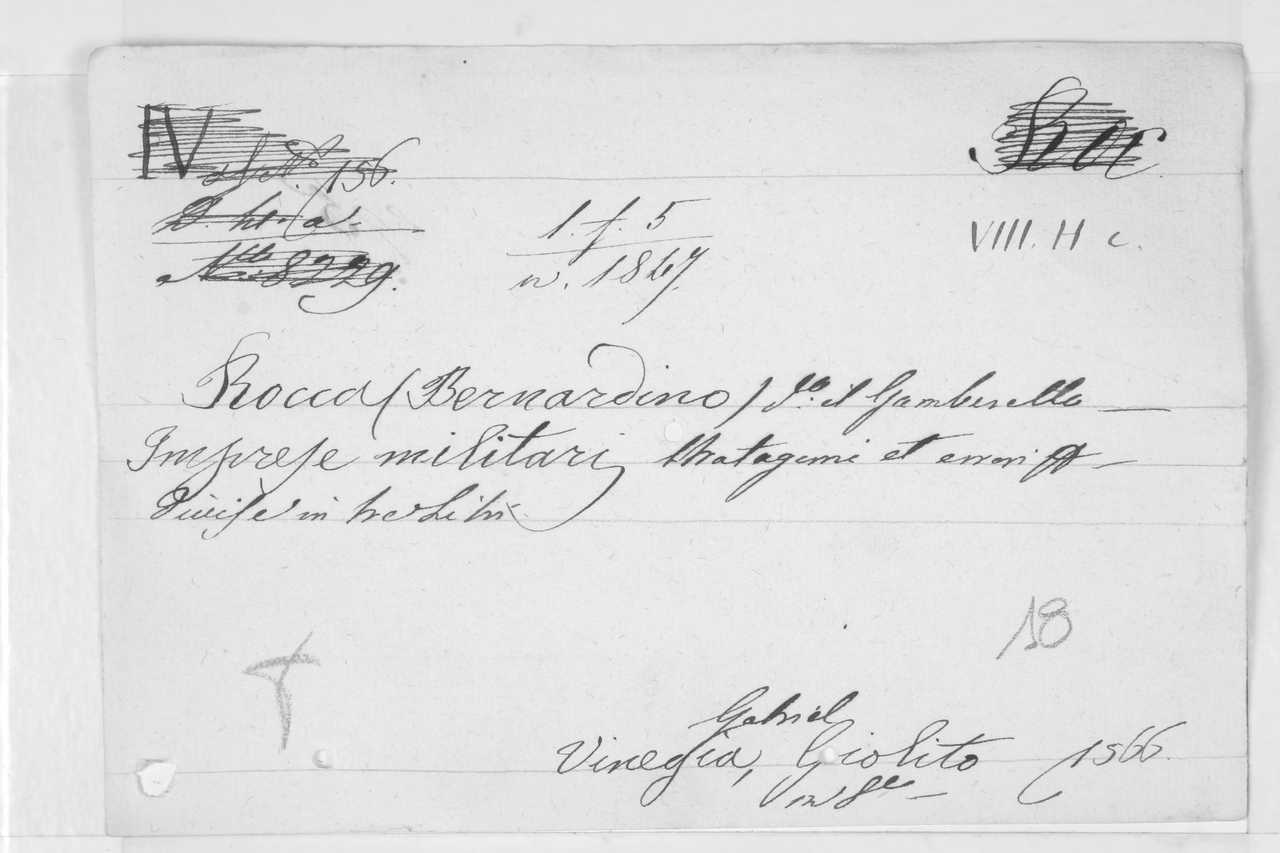 IV
156.
Roc
l. f. 5
VIII. H c.
N.le 8229.
n. 1847.
Rocca (Bernardino) d.o il Gamberello —
Imprese militari, stratagemi et errori —
Divise in tre Libri.
18
Gabriel
Vinegia, Giolito 1566
in 8.e —